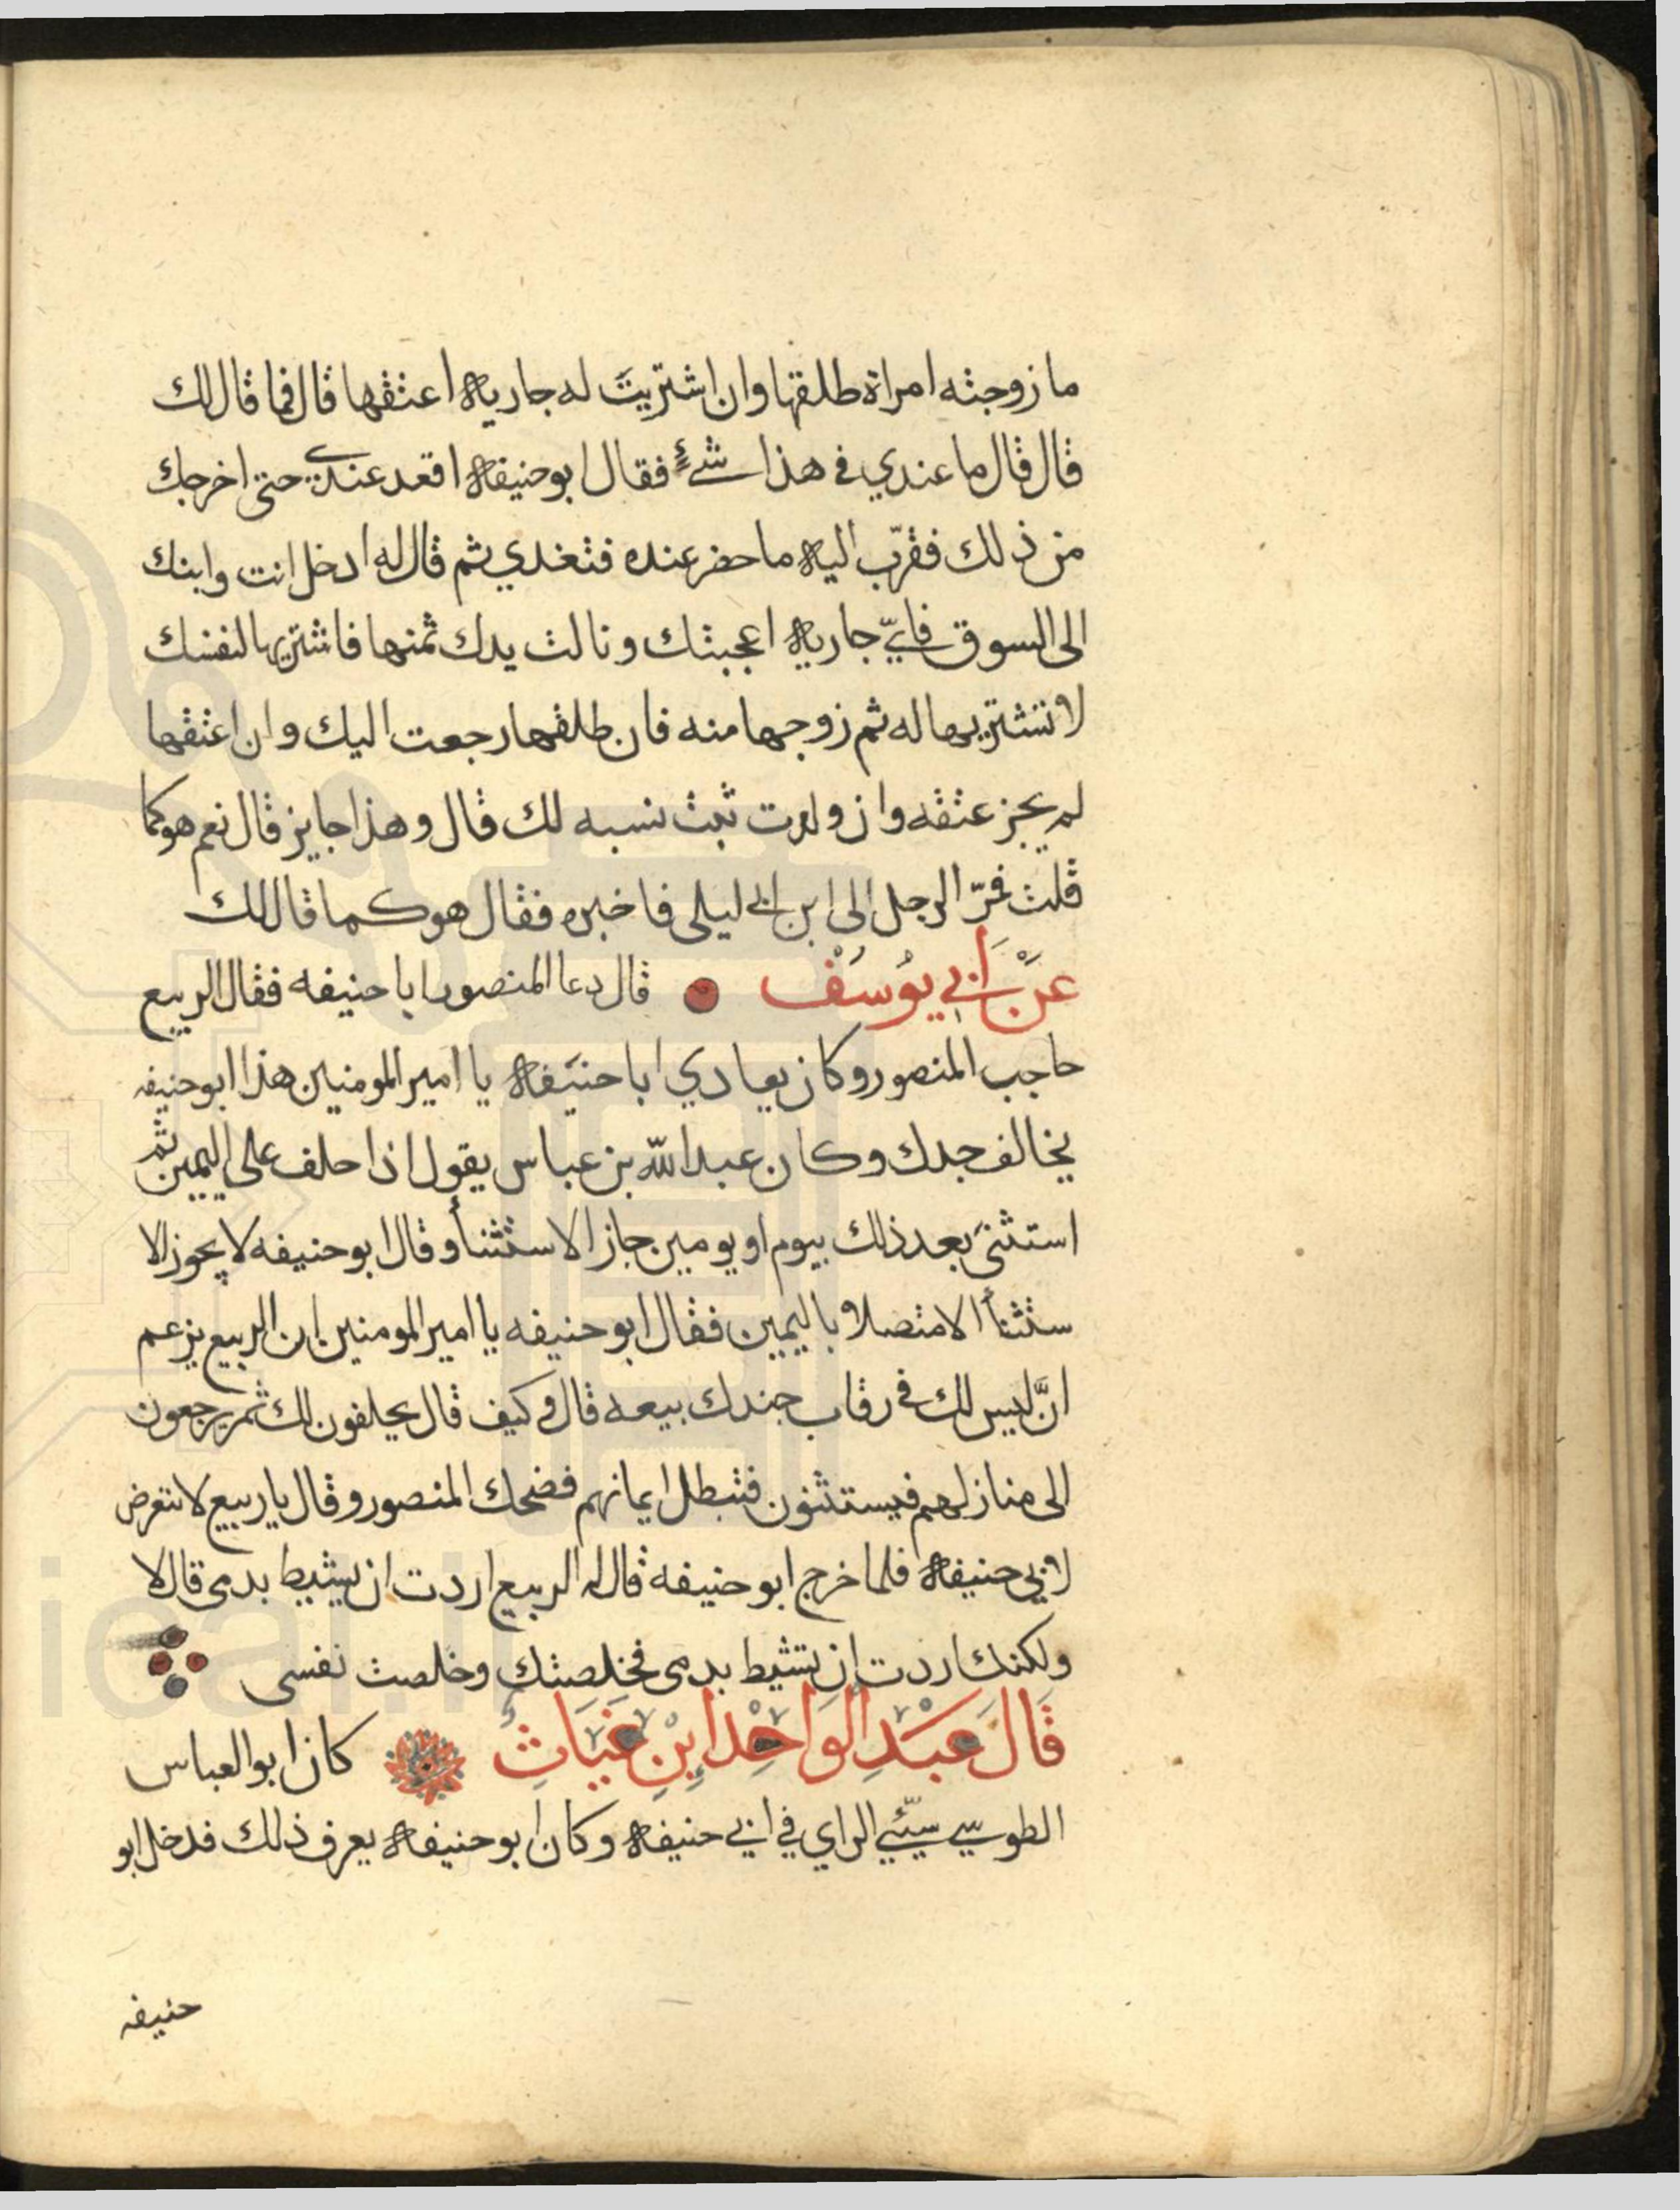 ما زوجته امراة طلقها وان اشتريت له جارية اعتقها قال فما قال لك
قال قال ما عندي في هذا شيء فقال ابو حنيفة اقعد عندي حتى اخرجك
من ذلك فقرّب اليه ما حضر عنده فتغدي ثم قال له ادخل انت وابنك
الى السوق فايّ جارية اعجبتك ونالت يدك ثمنها فاشتريها لنفسك
لا تشتريها له ثم زوجها منه فان طلقها رجعت اليك وان اعتقها
لم يجز عتقه وان ولدت ثبت نسبه لك قال وهذا جايز قال نعم هو كما
قلت فمرّ الرجل الى ابن ابي ليلى فاخبره فقال هو كما قال لك
عَنْ اَبي يوُسَفْ قال دعا المنصور ابا حنيفه فقال الربيع
حاجب المنصور وكان يعادي ابا حنيفة يا امير المومنين هذا ابو حنيفه
يخالف جدك وكان عبد اللّه بن عباس يقول اذا حلف على اليمين ثم
استثنى بعد ذلك بيوم او يومين جاز الاستثنأ وقال ابو حنيفه لا يجوز الا
ستثنأ الا متصلا باليمين فقال ابو حنيفه يا امير المومنين ان الربيع يزعم
انَّ ليس لك في رقاب جندك بيعه قال وكيف قال يحلفون لك ثم يرجعون
الى منازلهم فيستثنون فتبطل ايمانهم فضحك المنصور وقال يا ربيع لا تتعرض
لابي حنيفة فلما خرج ابو حنيفه قال له الربيع اردت ان يشيط بدمى قال لا
ولكنك اردت ان تشيط بدمى فخلصتك وخلصت نفسى
قَالَ عَبْدِ الوَاحْد ابْنِ غيَاثِ كان ابو العباس
الطوسي سيّئي الراي في ابي حنيفة وكان ابو حنيفة يعرف ذلك فدخل ابو
حنيفه